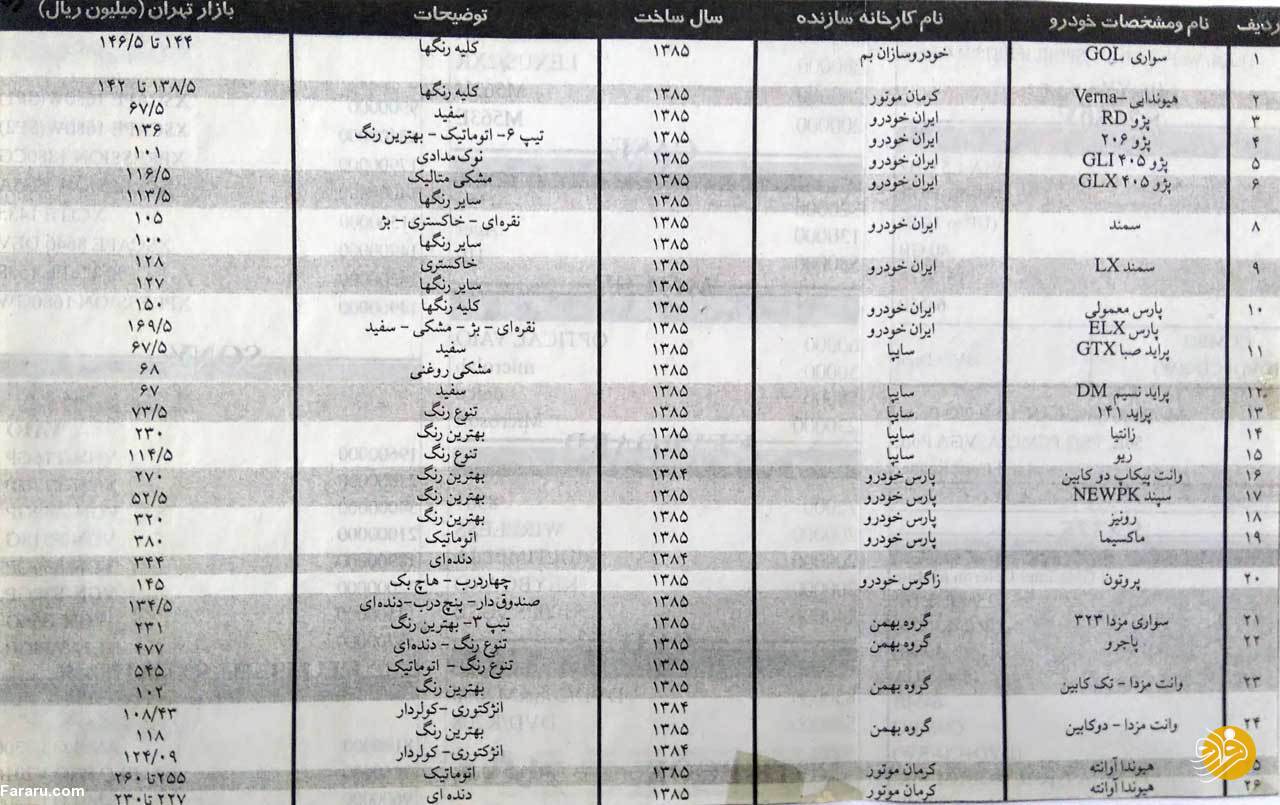 ردیف نام ومشخصات خودرو نام کارخانه سازنده سال ساخت توضیحات بازار تهران (میلیون ریال)
۱ سواری GOL خودروسازان بم ۱۳۸۵ کلیه رنگها ۱۴۴ تا ۱۴۶/۵
۲ هیوندایی –Verna کرمان موتور ۱۳۸۵ کلیه رنگها ۱۳۸/۵ تا ۱۴۲
۳ پژو RD ایران خودرو ۱۳۸۵ سفید ۶۷/۵
۴ پژو ۲۰۶ ایران خودرو ۱۳۸۵ تیپ ۶- اتوماتیک - بهترین رنگ ۱۳۶
۵ پژو ۴۰۵ GLI ایران خودرو ۱۳۸۵ نوک‌مدادی ۱۰۱
۶ پژو ۴۰۵ GLX ایران خودرو ۱۳۸۵ مشکی متالیک ۱۱۶/۵
۱۳۸۵ سایر رنگها ۱۱۳/۵
۸ سمند ایران خودرو ۱۳۸۵ نقره‌ای - خاکستری - بژ ۱۰۵
۱۳۸۵ سایر رنگها ۱۰۰
۹ سمند LX ایران خودرو ۱۳۸۵ خاکستری ۱۲۸
۱۳۸۵ سایر رنگها ۱۲۷
۱۰ پارس معمولی ایران خودرو ۱۳۸۵ کلیه رنگها ۱۵۰
پارس ELX ایران خودرو ۱۳۸۵ نقره‌ای - بژ - مشکی - سفید ۱۶۹/۵
۱۱ پراید صبا GTX سایپا ۱۳۸۵ سفید ۶۷/۵
۱۳۸۵ مشکی روغنی ۶۸
۱۲ پراید نسیم DM سایپا ۱۳۸۵ سفید ۶۷
۱۳ پراید ۱۴۱ سایپا ۱۳۸۵ تنوع رنگ ۷۳/۵
۱۴ زانتیا سایپا ۱۳۸۵ بهترین رنگ ۲۳۰
۱۵ ریو سایپا ۱۳۸۵ تنوع رنگ ۱۱۴/۵
۱۶ وانت پیکاپ دو کابین پارس خودرو ۱۳۸۴ بهترین رنگ ۲۷۰
۱۷ سپند NEWPK پارس خودرو ۱۳۸۵ بهترین رنگ ۵۲/۵
۱۸ رونیز پارس خودرو ۱۳۸۵ بهترین رنگ ۳۲۰
۱۹ ماکسیما پارس خودرو ۱۳۸۵ اتوماتیک ۳۸۰
۱۳۸۴ دنده‌ای ۳۴۴
۲۰ پروتون زاگرس خودرو ۱۳۸۵ چهاردرب - هاچ بک ۱۴۵
۱۳۸۵ صندوق‌دار- پنج درب-دنده‌ای ۱۳۴/۵
۲۱ سواری مزدا ۳۲۳ گروه بهمن ۱۳۸۵ تیپ ۳- بهترین رنگ ۲۳۱
۲۲ پاجرو گروه بهمن ۱۳۸۵ تنوع رنگ - دنده‌ای ۴۷۷
۱۳۸۵ تنوع رنگ - اتوماتیک ۵۴۵
۲۳ وانت مزدا - تک کابین گروه بهمن ۱۳۸۵ بهترین رنگ ۱۰۲
۱۳۸۴ انژکتوری -کولردار ۱۰۸/۴۳
۲۴ وانت مزدا - دوکابین گروه بهمن ۱۳۸۵ بهترین رنگ ۱۱۸
۱۳۸۴ انژکتوری-کولردار ۱۲۴/۰۹
۵ هیوندا آوانته کرمان موتور ۱۳۸۵ اتوماتیک ۲۵۵ تا ۲۶۰
۲۶ هیوندا آوانته کرمان موتور ۱۳۸۵ دنده ای ۲۲۷ تا ۲۳۰
فرارو
Fararu.com